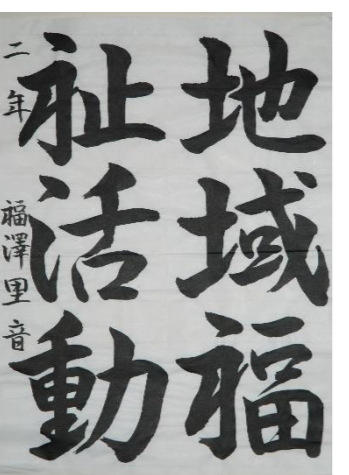 地域福
祉活動
二年 福澤里音